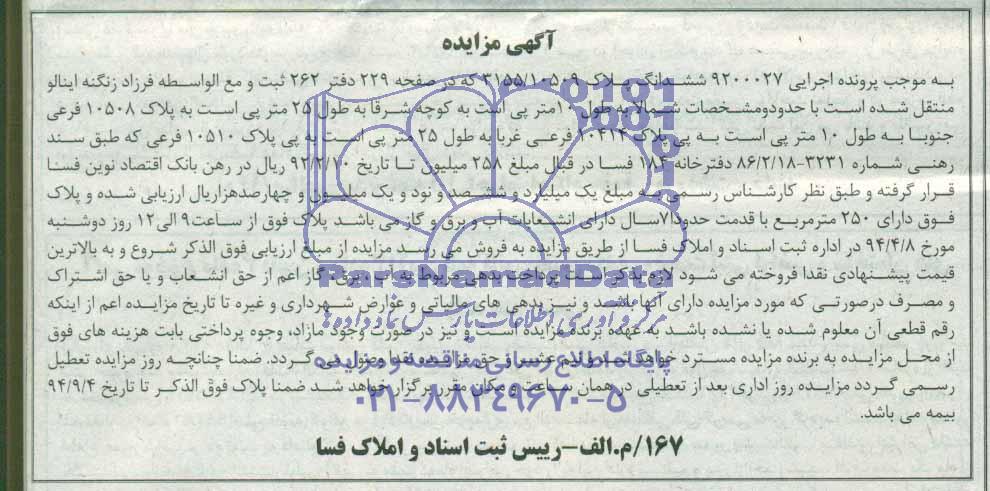 آگهی مزایده
به موجب پرونده اجرایی ۹۲۰۰۰۲۷ ششدانگ پلاک ۳۱۵۵/۱۰۵۰۹ که در صفحه ۲۲۹ دفتر ۲۶۲ ثبت و مع الواسطه فرزاد زنگنه اینالو
منتقل شده است با حدودومشخصات شمالا به طول ۱۰متر پی است به کوچه شرقا به طول ۲۵ متر پی است به پلاک ۱۰۵۰۸ فرعی
جنوبا به طول ۱۰ متر پی است به پی پلاک ۱۰۴۱۴ فرعی غربا به طول ۲۵ متر پی است به پی پلاک ۱۰۵۱۰ فرعی که طبق سند
رهنی شماره ۳۲۳۱-۸۶/۲/۱۸ دفترخانه ۱۸۴ فسا در قبال مبلغ ۲۵۸ میلیون تا تاریخ ۹۲/۲/۲۰ ریال در رهن بانک اقتصاد نوین فسا
قرار گرفته و طبق نظر کارشناس رسمی به مبلغ یک میلیارد و ششصد و نود و یک میلیون و چهارصدهزارریال ارزیابی شده و پلاک
فوق دارای ۲۵۰ مترمربع با قدمت حدودا۷سال دارای انشعابات آب و برق و گاز می باشد پلاک فوق از ساعت۹ الی۱۲ روز دوشنبه
مورخ ۹۴/۴/۸ در اداره ثبت اسناد و املاک فسا از طریق مزایده به فروش می رسد مزایده از مبلغ ارزیابی فوق الذکر شروع و به بالاترین
قیمت پیشنهادی نقدا فروخته می شود لازم بذکر است پرداخت بدهی مربوط به آب، برق، گاز اعم از حق انشعاب و یا حق اشتراک
و مصرف درصورتی که مورد مزایده دارای آنها باشد و نیز بدهی های مالیاتی و عوارض شهرداری و غیره تا تاریخ مزایده اعم از اینکه
رقم قطعی آن معلوم شده یا نشده باشد به عهده برنده مزایده است و نیز در صورت وجود مازاد، وجوه پرداختی بابت هزینه های فوق
از محل مزایده به برنده مزایده مسترد خواهد شد و نیم عشر و حق مزایده نقدا وصول می گردد. ضمنا چنانچه روز مزایده تعطیل
رسمی گردد مزایده روز اداری بعد از تعطیلی در همان ساعت و مکان مقرر برگزار خواهد شد ضمنا پلاک فوق الذکر تا تاریخ ۹۴/۹/۴
بیمه می باشد.
۱۶۷/م.الف-رییس ثبت اسناد و املاک فسا
ParsNamadData
مرکز فرآوری اطلاعات پارس نماد داده ها
پایگاه اطلاع رسانی مناقصه و مزایده
۰۲۱-۸۸۳۴۹۶۷۰-۵